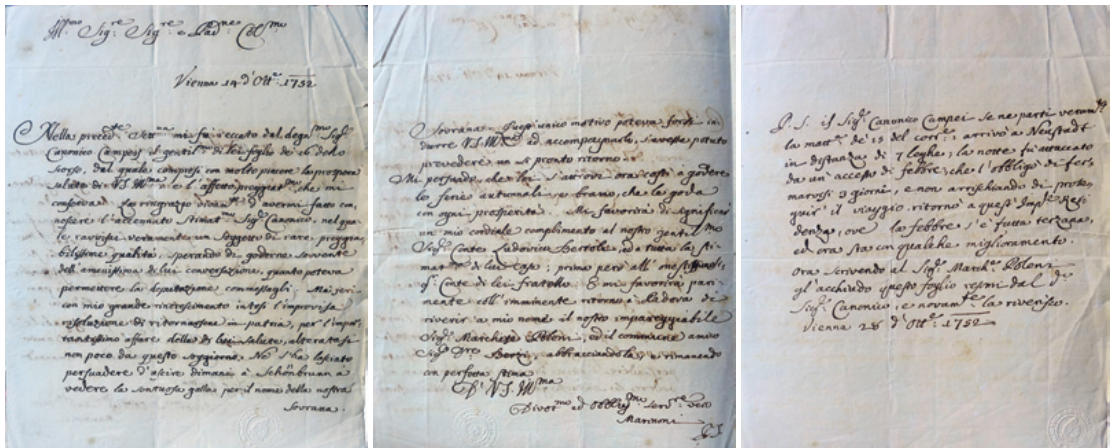 Ill.mo Sig.re Sig.re e Pad.ne Col.mo
Vienna 14 d'Ott.e 1752
Nella preced.te Sett.na mi fu reccato dal degn.mo Sig.r
Canonico Campei il gentil.mo di lei foglio de' 16 dello
scorso, dal quale compresi con molto piacere la prospera
salute di V.S. Ill.ma e l'affetto preggiat.mo che mi
conserva. La ringrazio d'avermi fatto con-
noscere l'accennato Stimat.mo Sig.r Canonico, nel qua-
le ravvisai veramente un soggetto di rare, preggia-
bilissime qualità, sperando di goderne sovvente
dell'amenissima di lui conversazione, quanto poteva
permettere la deputazione commessagli. Ma jeri
con mio grande rincrescimento intesi l'improvisa
risoluzione di ritornarsene in patria, per l'impor-
tantissimo affare della di lui salute, alteratasi
non poco da questo soggiorno. Nò s'ha lasciato
persuadere d'uscire dimani à Schönbrunn a
vedere la sontuosa galla per il nome della nostra
Sovrana.
Sovrana. Quest'unico motivo poteva forse in-
durre V.S. Ill.ma ad accompagnarlo, s'avesse potuto
prevedere un sì pronto ritorno.
Mi persuado, che lei si trovi ora costì a godere
le ferie autunnali, e bramo, che la goda
con ogni prosperità. Mi favorirà di significar
un mio cordiale complimento al nostro gentil.mo
Sig.r Conte Ludovico Bertole, ed a tutta la sti-
mat.ma di lui Casa; prima però all'
Conte di lui fratello. E mi favorirà pari-
mente coll'imminente ritorno à Padova di
riverir a mio nome il nostro impareggiabile
Sig.r Marchese Poleni, ed il commune amico
Sig.r Bertri, abbracciandola, e rimanendo
con perfetta stima
Di V.S. Ill.ma
Divot.mo ed Obblig.mo Serv.re vero
Marinoni
P. S. il Sig.r Canonico Campei se ne partì
la matt.a de' 15 del corr.e: arrivò a Neustadt
in distanza di 7 leghe; la notte fu attaccato
da un'accesso di febbre, che l'obbligò di fer-
marvisi 3 giorni, e non arrischiando di prose-
guir' il viaggio ritornò a quest' Imp.le Resi-
denza, ove la febbre s'è fatta terzana,
ed ora sta con qualche miglioramento.
Ora scrivendo al Sig.r March.e Poleni
gl'acchiudo questo foglio resomi dal d.o
Sig.r Canonico, e novam.te la riverisco.
Vienna 28 d'Ott.e 1752